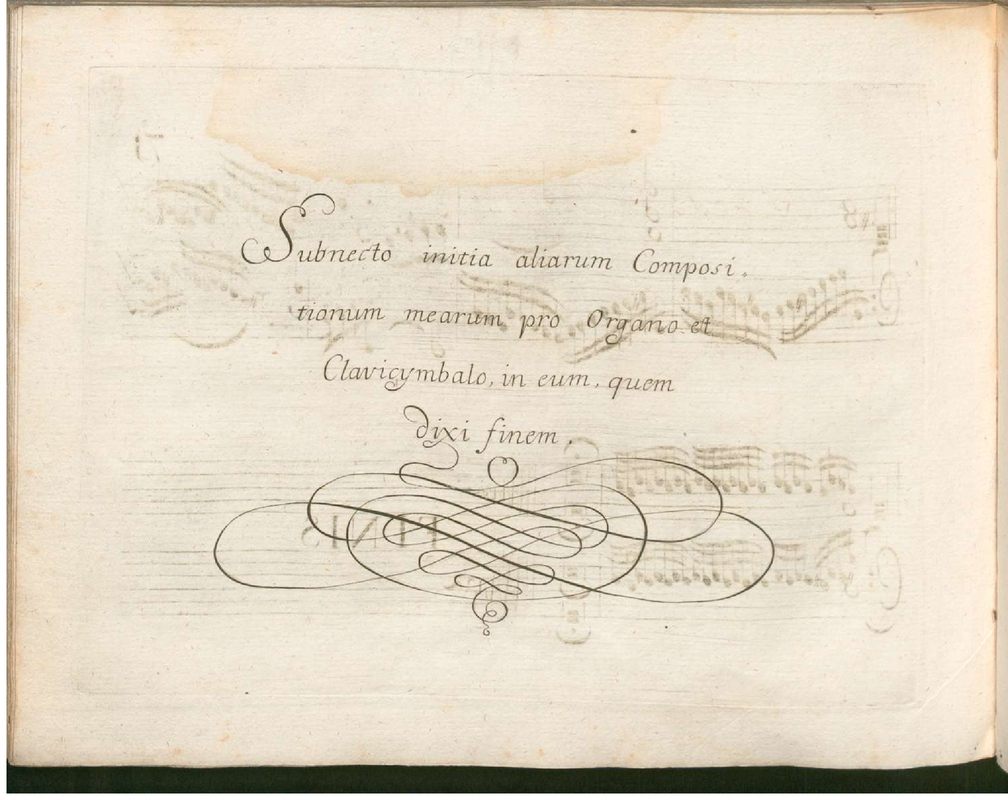 Subnecto initia aliarum Composi.
tionum mearum pro Organo et
Clavicymbalo, in eum, quem
dixi finem.
FINIS